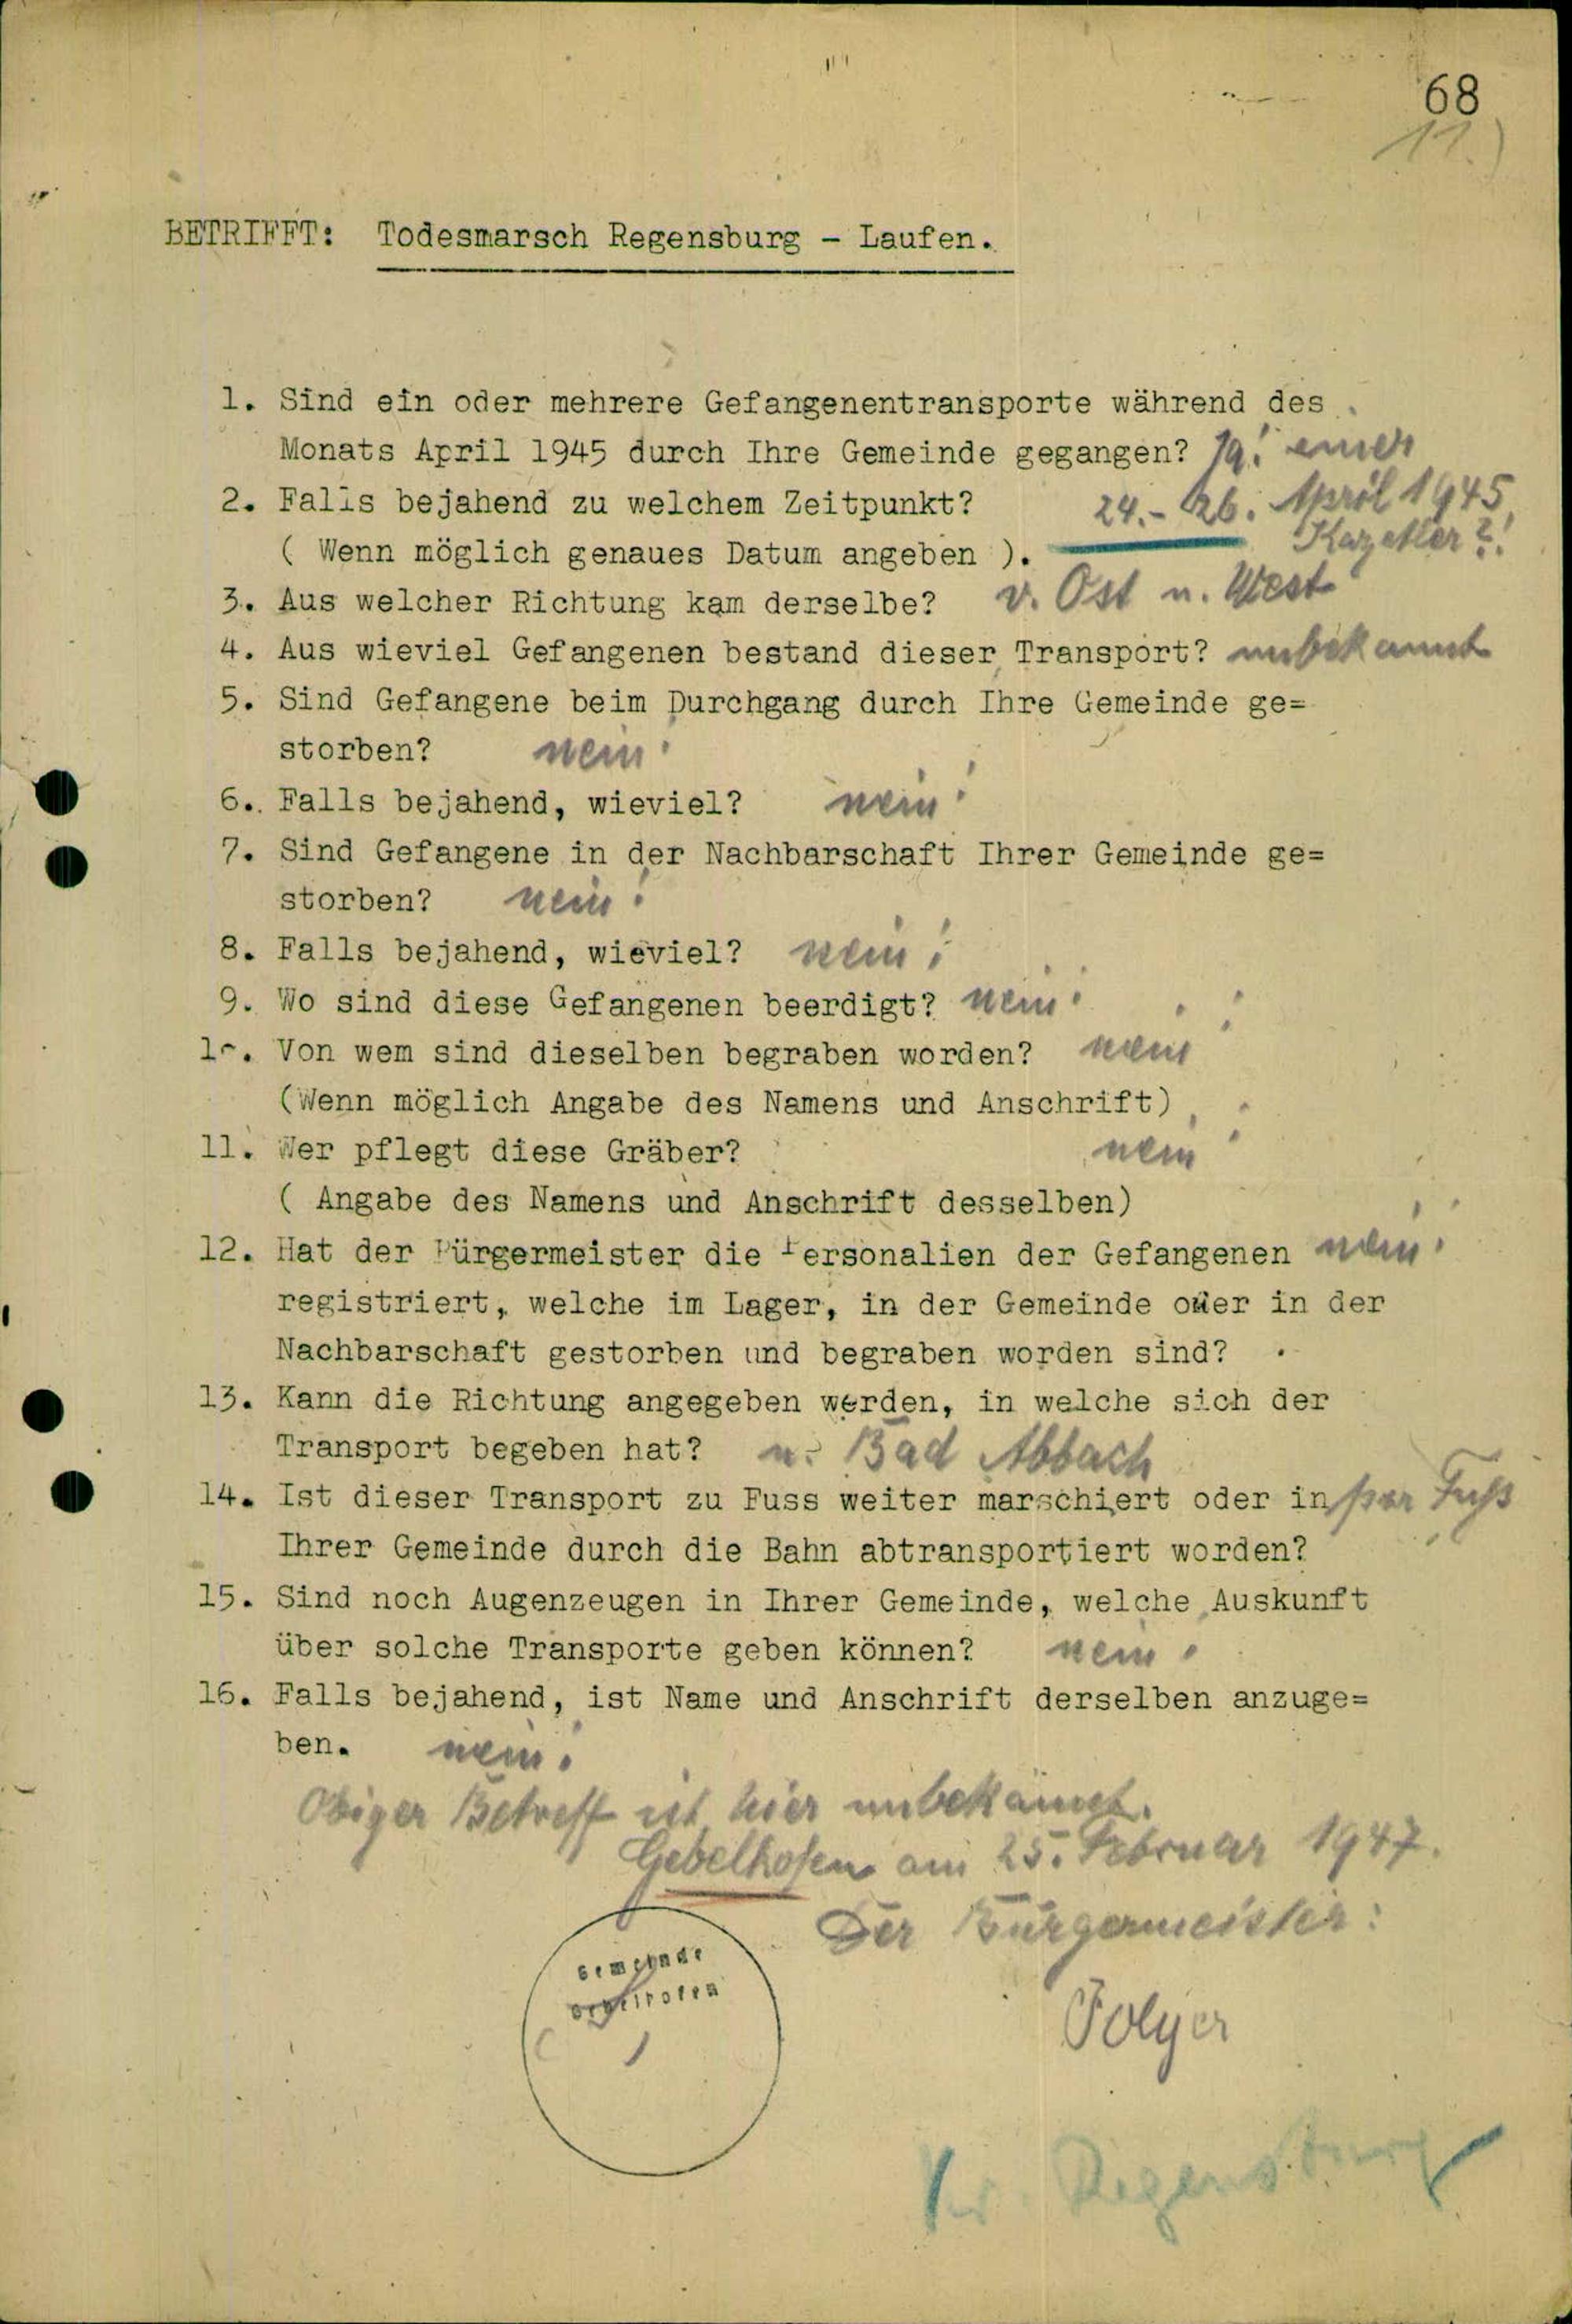 68
11.)
BETRIFFT: Todesmarsch Regensburg - Laufen.
1. Sind ein oder mehrere Gefangenentransporte während des
Monats April 1945 durch Ihre Gemeinde gegangen? Ja! einer
2. Falls bejahend zu welchem Zeitpunkt? 24.- 26. April 1945,
( Wenn möglich genaues Datum angeben ). Kazetler?!
3. Aus welcher Richtung kam derselbe? v. Ost n. West
4. Aus wieviel Gefangenen bestand dieser Transport? unbekannt
5. Sind Gefangene beim Durchgang durch Ihre Gemeinde ge=
storben? nein!
6. Falls bejahend, wieviel? nein!
7. Sind Gefangene in der Nachbarschaft Ihrer Gemeinde ge=
storben? nein!
8. Falls bejahend, wieviel? nein!
9. Wo sind diese Gefangenen beerdigt? nein!
10. Von wem sind dieselben begraben worden? nein!
(Wenn möglich Angabe des Namens und Anschrift)
11. Wer pflegt diese Gräber? nein!
( Angabe des Namens und Anschrift desselben)
12. Hat der Bürgermeister die Personalien der Gefangenen nein!
registriert, welche im Lager, in der Gemeinde oder in der
Nachbarschaft gestorben und begraben worden sind?
13. Kann die Richtung angegeben werden, in welche sich der
Transport begeben hat? n. Bad Abbach
14. Ist dieser Transport zu Fuss weiter marschiert oder in per Fuß
Ihrer Gemeinde durch die Bahn abtransportiert worden?
15. Sind noch Augenzeugen in Ihrer Gemeinde, welche Auskunft
über solche Transporte geben können? nein!
16. Falls bejahend, ist Name und Anschrift derselben anzuge=
ben. nein!
Obiger Betreff ist hier unbekannt.
Gebelkofen am 25. Februar 1947.
Der Bürgermeister:
Gemeinde
Gebelkofen
Kr. Regensburg